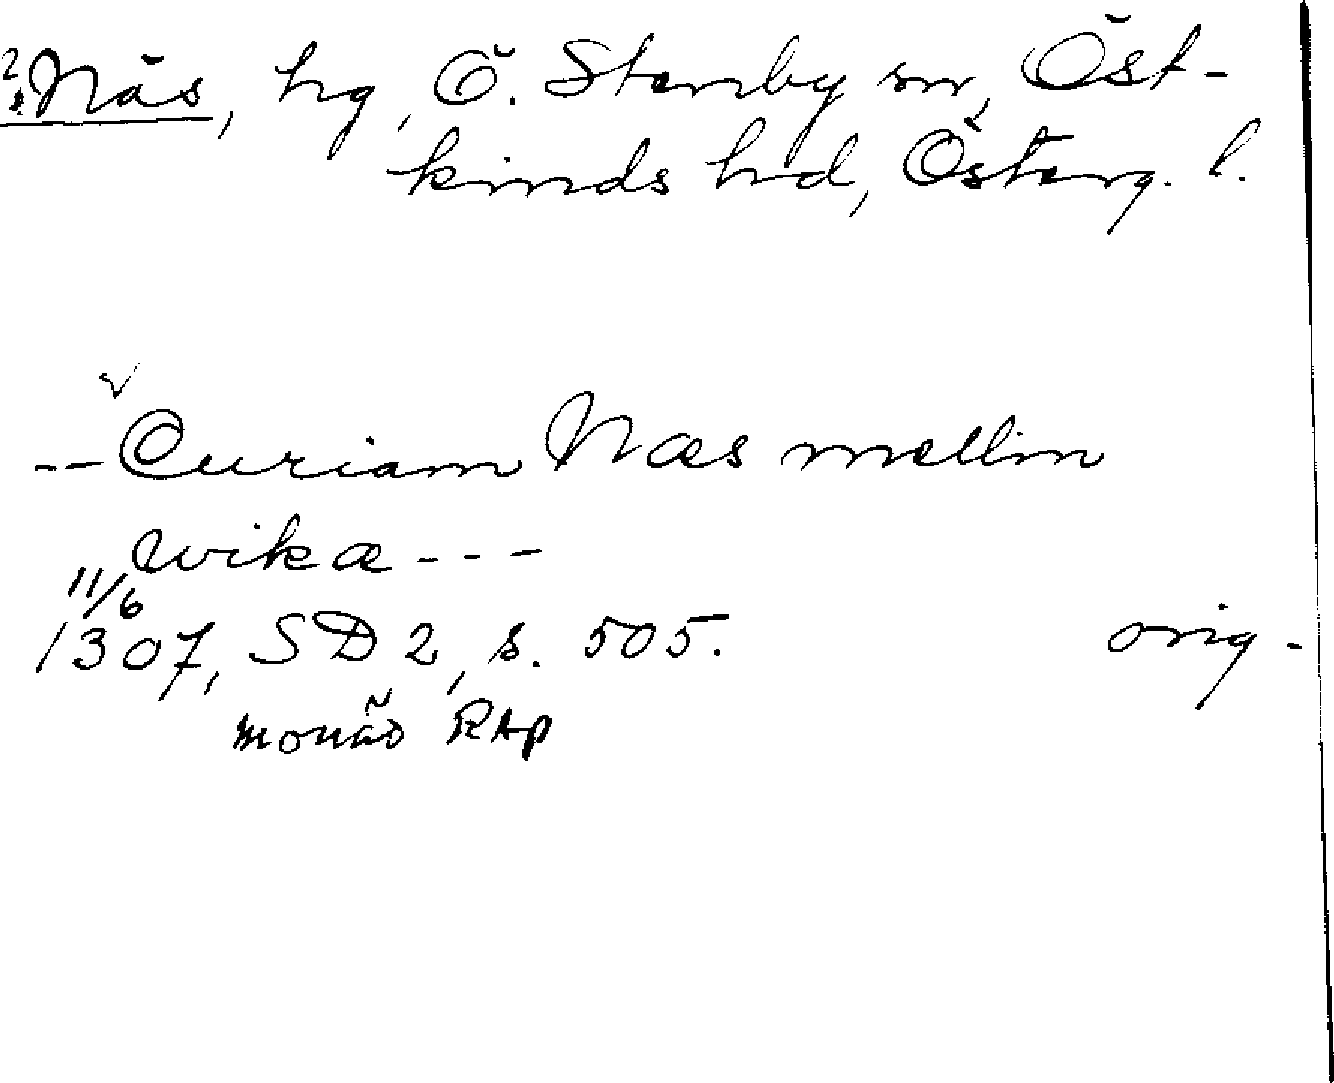 ? Näs, hg, Ö. Stenby sn, Öst-
kinds hd, Österg. l.
-- Curiam Næs mellin
wikæ ---
11/6
1307, SD 2, s. 505. orig.
RAp